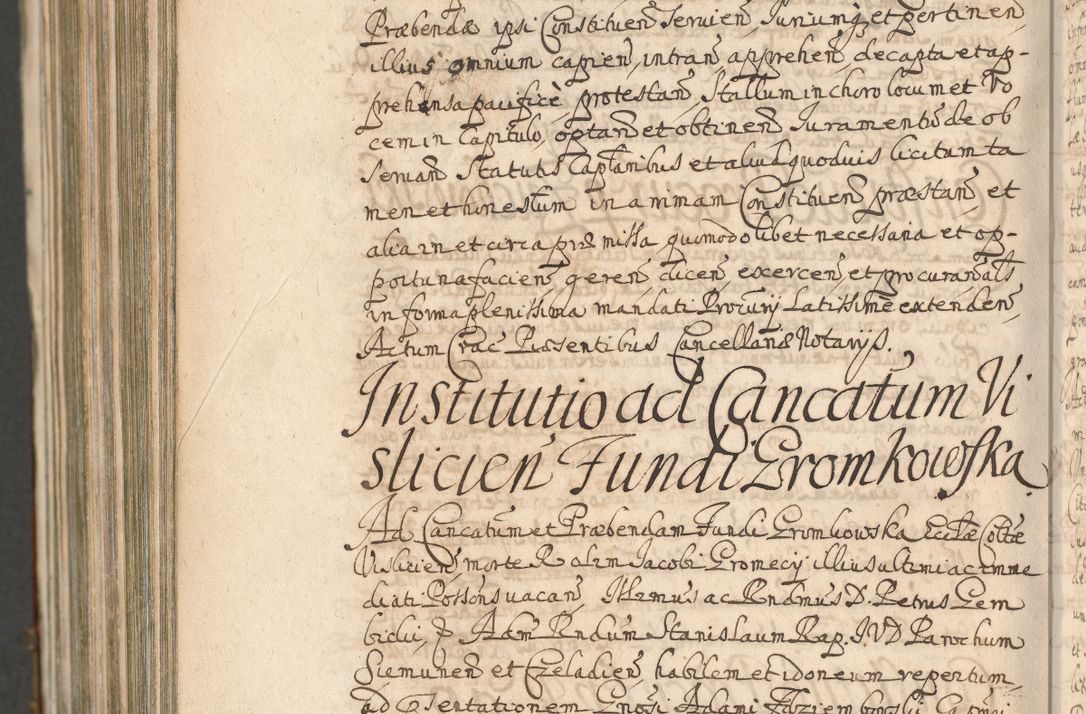 Præbendæ ipsi Constituen̄ servien̄ Iuriumq̨ et pertinen
illius omnium capien̄, intran̄ apprehen̄, de capta et ap-
prehensa pacificè protestan̄, Stallum in choro locum et vo
cem in Capitulo, optan̄ et obtinen̄ Iuramento de ob
servan̄ Statutis Caplaribus et aliud quoduis licitum ta
men et honestum in animam Constituen̄ præstan̄, et
alia in et circa præmissa quomodolibet necessaria et op-
portuna facien̄, geren̄, dicen̄, exercen̄, et procuran̄ als
in forma plenissima mandati Procurij Latissime extenden̄,
Actum Crac̄ Præsentibus Cancellariæ Notarijs.
Institutio ad Cancatum Vi
slicien̄ Fundi Gromkowska
Ad Cancatum et Præbendam Fundi Gromkowska Ecclæ Coltæ
Vislicien̄, morte R olim Jacobi Gromecij illius ultimi ac imme
diati Possoris vacan̄, Illrmus ac Rndmus D. Petrus Gem
bicki, P Adm Rndum Stanislaum Rap. IVD Parochum
Siemunen̄ et Czeladien̄, habilem et idoneum repertum
ad Psentationem Gnosi Adami